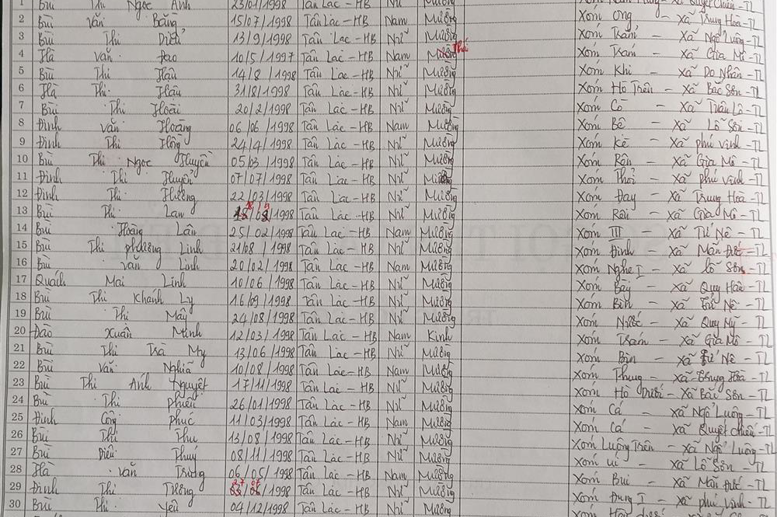 1 Bùi Thị Ngọc Anh 23/01/1998 Tân Lạc-HB Nữ Mường
2 Bùi Văn Bằng 15/07/1998 Tân Lạc-HB Nam Mường Xóm Ong - xã Trung Hoà-TL
3 Bùi Thị Diễu 13/9/1998 Tân Lạc-HB Nữ Mường Xóm Trăm - xã Ngổ Luông-TL
4 Hà Văn Đạo 10/5/1997 Tân Lạc-HB Nam Xóm Trám - xã Gia Mô-TL
5 Bùi Thị Hậu 14/8/1998 Tân Lạc-HB Nữ Mường Xóm Khi - xã Do Nhân-TL
6 Hà Thị Hậu 31/8/1998 Tân Lạc-HB Nữ Mường Xóm Hò Trên - xã Bắc Sơn-TL
7 Bùi Thị Hoài 20/2/1998 Tân Lạc-HB Nữ Mường Xóm Cò - xã -TL
8 Đinh Văn Hoàng 06/06/1998 Tân Lạc-HB Nam Mường Xóm Bệ - xã Lỗ Sơn-TL
9 Đinh Thị Hồng 24/4/1998 Tân Lạc-HB Nữ Mường Xóm Kè - xã phú vinh-TL
10 Bùi Thị Ngọc Huyền 05/03/1998 Tân Lạc-HB Nữ Mường Xóm Rên - xã Gia Mô-TL
11 Đinh Thị Huyền 07/07/1998 Tân Lạc-HB Nữ Mường Xóm Thỏi - xã phú vinh-TL
12 Đinh Thị Hường 22/03/1998 Tân Lạc-HB Nữ Mường Xóm Đay - xã Trung Hoà-TL
13 Bùi Thị Lan /1998 Tân Lạc-HB Nữ Mường Xóm - xã Gia Mô-TL
14 Bùi Hoàng Lân 25/02/1998 Tân Lạc-HB Nam Mường Xóm III - xã Tử Nê-TL
15 Bùi Thị phương Linh 21/08/1998 Tân Lạc-HB Nữ Mường Xóm Đình - xã Mãn Đức-TL
16 Bùi Văn Linh 20/02/1998 Tân Lạc-HB Nam Mường Xóm Nghẹ I - xã Lỗ Sơn-TL
17 Quách Mai Linh 10/06/1998 Tân Lạc-HB Nữ Mường Xóm Bay - xã Quy Hậu-TL
18 Bùi Thị Khánh Ly 16/09/1998 Tân Lạc-HB Nữ Mường Xóm Bin - xã Tử Nê-TL
19 Bùi Thị Mây 24/08/1998 Tân Lạc-HB Nữ Mường Xóm - xã Quy Mỹ-TL
20 Đào Xuân Minh 12/03/1998 Tân Lạc-HB Nam Kinh Xóm Trám - xã Gia Mô-TL
21 Bùi Thị Trà My 13/06/1998 Tân Lạc-HB Nữ Mường Xóm Bin - xã Tử Nê-TL
22 Bùi Văn Nghĩa 10/08/1998 Tân Lạc-HB Nam Mường Xóm Thung - xã Trung Hoà-TL
23 Bùi Thị Ánh Nguyệt 17/11/1998 Tân Lạc-HB Nữ Mường Xóm Hò Dưới - xã Bắc Sơn-TL
24 Bùi Thị 26/01/1998 Tân Lạc-HB Nữ Mường Xóm Cá - xã Ngổ Luông-TL
25 Đinh Công phúc 11/03/1998 Tân Lạc-HB Nam Mường Xóm Cá - xã Quyết Chiến-TL
26 Bùi Thị Thu 13/08/1998 Tân Lạc-HB Nữ Mường Xóm Luông Trên - xã Ngổ Luông-TL
27 Bùi Diệu Thuý 08/11/1998 Tân Lạc-HB Nữ Mường Xóm ui - xã Lỗ Sơn-TL
28 Hà Văn Trường 06/05/1998 Tân Lạc-HB Nam Mường Xóm Bui - xã Mãn Đức-TL
29 Đinh Thị /1998 Tân Lạc-HB Nữ Mường Xóm I - xã phú vinh-TL
30 Bùi Thị Yêu 04/12/1998 Tân Lạc-HB Nữ Mường